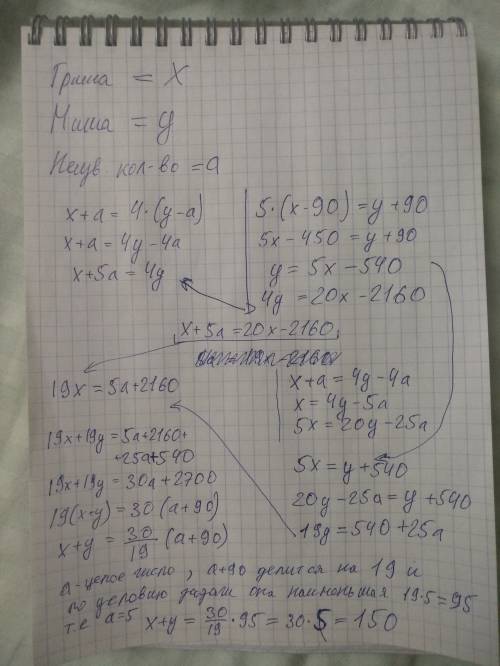 Гриша = x
Миша = y
Неизв кол-во = a
x+a = 4·(y-a)
x+a = 4y-4a
x+5a = 4y
5·(x-90) = y+90
5x-450 = y+90
y = 5x-540
4y = 20x-2160
x+5a = 20x-2160
19x = 5a+2160
x+a = 4y-4a
x = 4y-5a
5x = 20y-25a
5x = y+540
20y-25a = y+540
19y = 540+25a
19x+19y = 5a+2160+
+25a+540
19x+19y = 30a+2700
19(x+y) = 30(a+90)
x+y = 30/19 (a+90)
a - целое число, a+90 делится на 19 и
по условию задачи она наименьшая 19·5=95
т.е a=5 x+y = 30/19 · 95 = 30·5 = 150